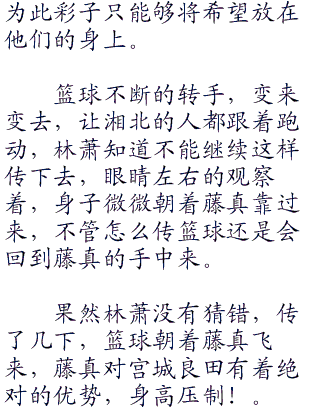 为此彩子只能够将希望放在
他们的身上。
篮球不断的转手，变来
变去，让湘北的人都跟着跑
动，林萧知道不能继续这样
传下去，眼睛左右的观察
着，身子微微朝着藤真靠过
来，不管怎么传篮球还是会
回到藤真的手中来。
果然林萧没有猜错，传
了几下，篮球朝着藤真飞
来，藤真对宫城良田有着绝
对的优势，身高压制！。